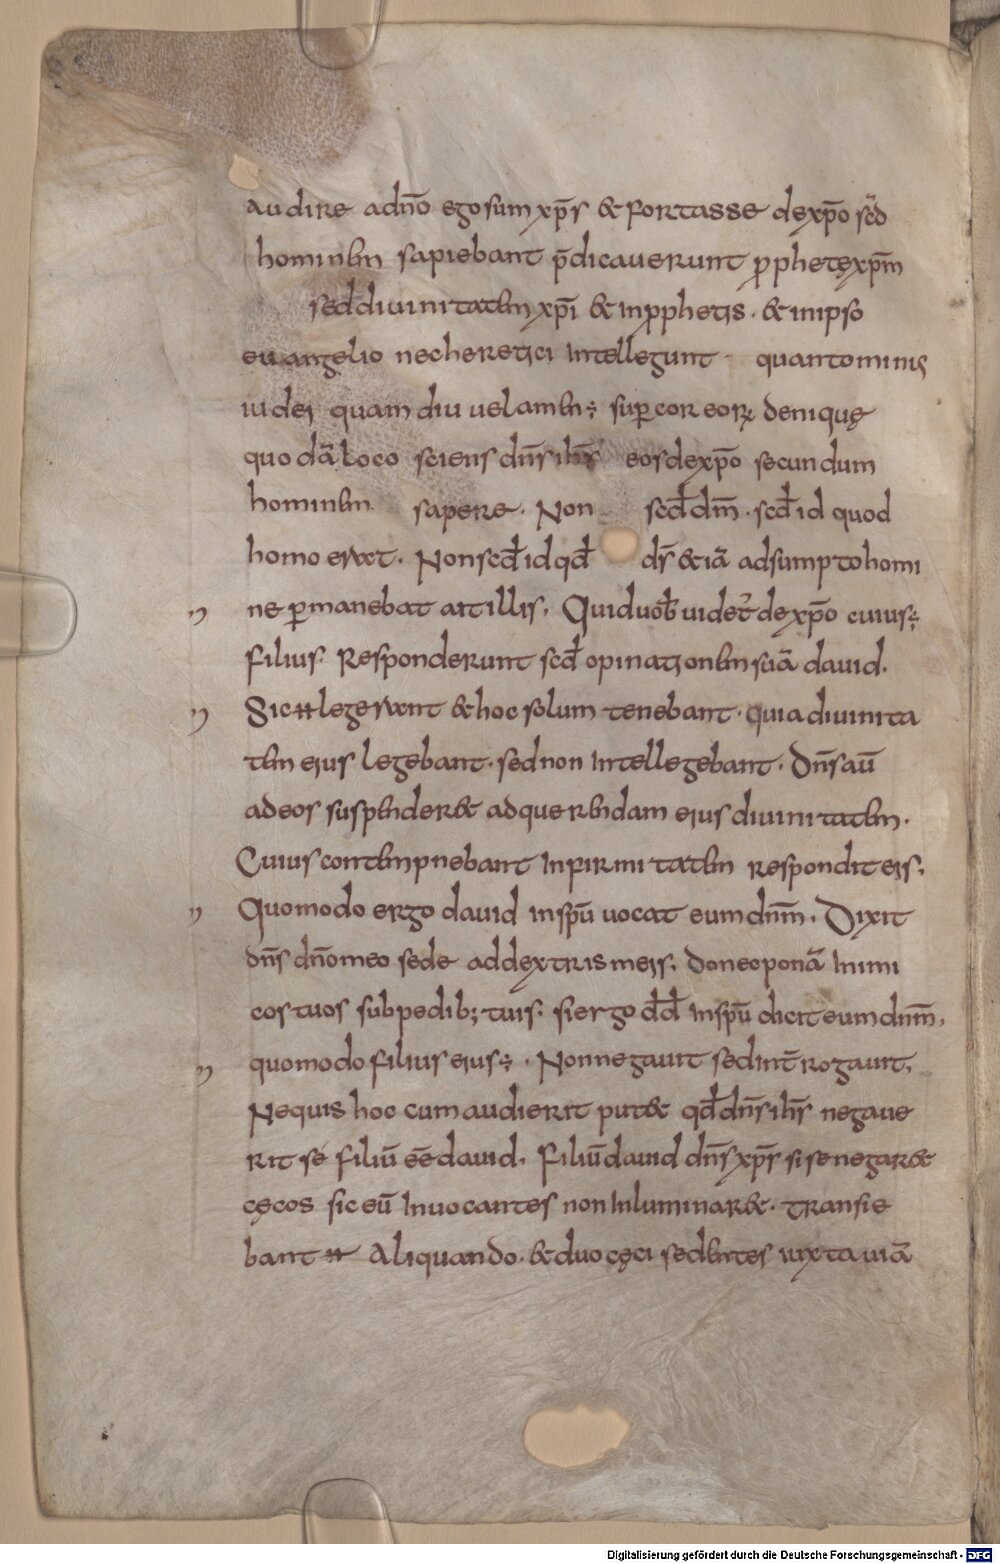 audire adn̄o ego sum xp̄s & fortasse dexp̄o scd̄
hominem sapiebant p̄dicauerunt ꝓphetę xp̄m
sed diuinitatem xp̄i & in ꝓphetis · & in ipso
euangelio nec heretici intellegunt · quanto minus
iudei quam diu uelamen; suꝑ cor eoꝝ denique
quodā loco sciens dn̄s ih̄s eos dexp̄o secundum
hominem sapere · Non scd̄ dm̄ · scd̄ id quod
homo erat · Non scd̄ id qd̄ ds̄ &iā adsumpto homi
ne ꝑmanebat ait illis, Quid uob̄ uidet̄ dexp̄o cuius;
filius · Responderunt scd̄ opinationem suā dauid ·
Sic ħ legerant & hoc solum tenebant · quia diuinita
tem eius legebant · sed non intellegebant · Dn̄s aū
ad eos suspender& ad querendam eius diuinitatem ·
Cuius contempnebant infirmitatem respondit eis,
Quomodo ergo dauid in spū uocat eum dn̄m, Dixit
dn̄s dn̄o meo sede ad dextris meis, donec ponā inimi
cos tuos sub pedib; tuis · si ergo dd̄ in spū dicit eum dn̄m,
quomodo filius eius; · Non negauit sed int̄rogauit,
Ne quis hoc cum audierit put& qd̄ dn̄s ih̄s negaue
rit se filiū eē dauid, filiū dauid dn̄s xp̄s si se negar&
cęcos sic eū inuocantes non inluminar& · transie
bant ħ aliquando · & duo cęci sedentes iuxta uiā
Digitalisierung gefördert durch die Deutsche Forschungsgemeinschaft - DFG